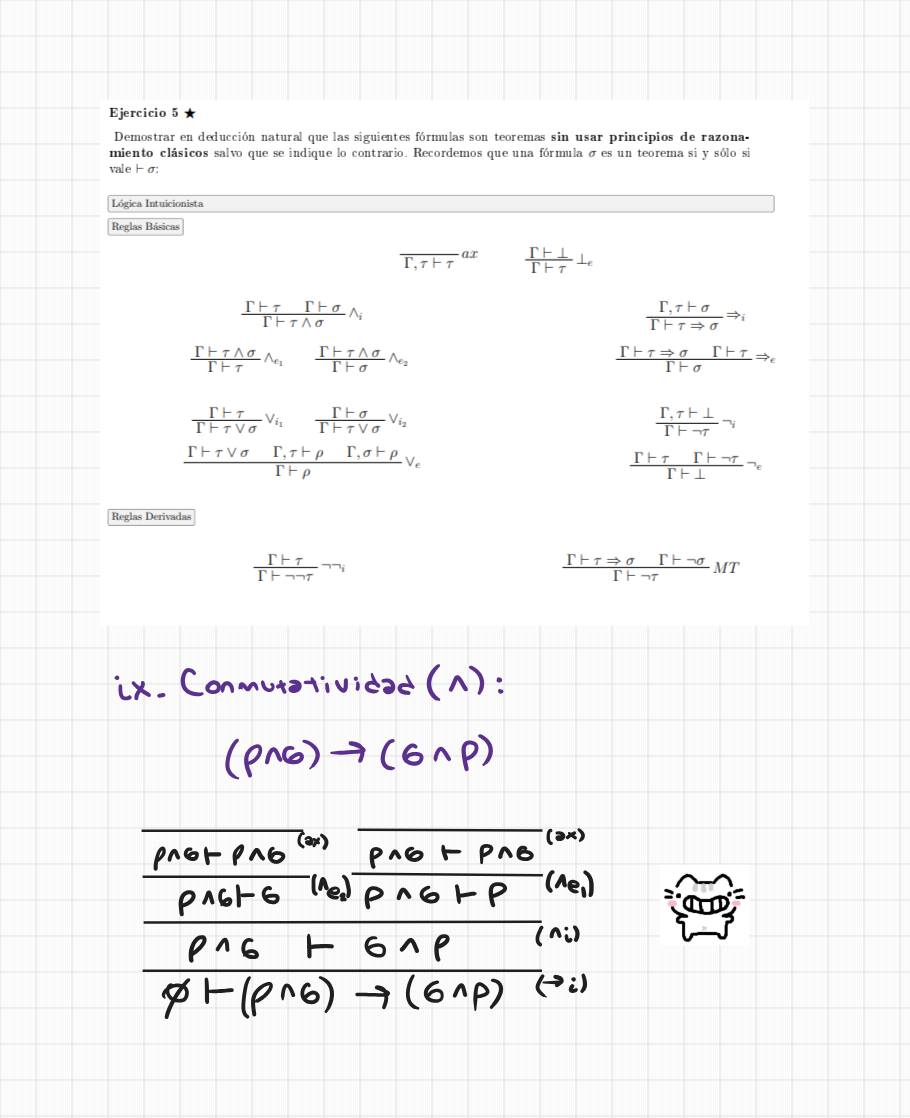 Ejercicio 5 ★
Demostrar en deducción natural que las siguientes fórmulas son teoremas sin usar principios de razona-
miento clásicos salvo que se indique lo contrario. Recordemos que una fórmula σ es un teorema si y sólo si
vale ⊢ σ:
Lógica Intuicionista
Reglas Básicas
Γ, τ ⊢ τ ax
Γ ⊢ ⊥
Γ ⊢ τ ⊥e
Γ ⊢ τ Γ ⊢ σ
Γ ⊢ τ ∧ σ ∧i
Γ, τ ⊢ σ
Γ ⊢ τ ⇒ σ ⇒i
Γ ⊢ τ ∧ σ
Γ ⊢ τ ∧e1
Γ ⊢ τ ∧ σ
Γ ⊢ σ ∧e2
Γ ⊢ τ ⇒ σ Γ ⊢ τ
Γ ⊢ σ ⇒e
Γ ⊢ τ
Γ ⊢ τ ∨ σ ∨i1
Γ ⊢ σ
Γ ⊢ τ ∨ σ ∨i2
Γ, τ ⊢ ⊥
Γ ⊢ ¬τ ¬i
Γ ⊢ τ ∨ σ Γ, τ ⊢ ρ Γ, σ ⊢ ρ
Γ ⊢ ρ ∨e
Γ ⊢ τ Γ ⊢ ¬τ
Γ ⊢ ⊥ ¬e
Reglas Derivadas
Γ ⊢ τ
Γ ⊢ ¬¬τ ¬¬i
Γ ⊢ τ ⇒ σ Γ ⊢ ¬σ
Γ ⊢ ¬τ MT
ix. Conmutatividad (∧):
(ρ∧σ) → (σ ∧ ρ)
ρ∧σ ⊢ ρ∧σ (ax) ρ∧σ ⊢ ρ∧σ (ax)
ρ∧σ ⊢ σ (∧e2) ρ ∧ σ ⊢ ρ (∧e1)
ρ ∧ σ ⊢ σ ∧ ρ (∧i)
∅ ⊢ (ρ∧σ) → (σ∧ρ) (→i)